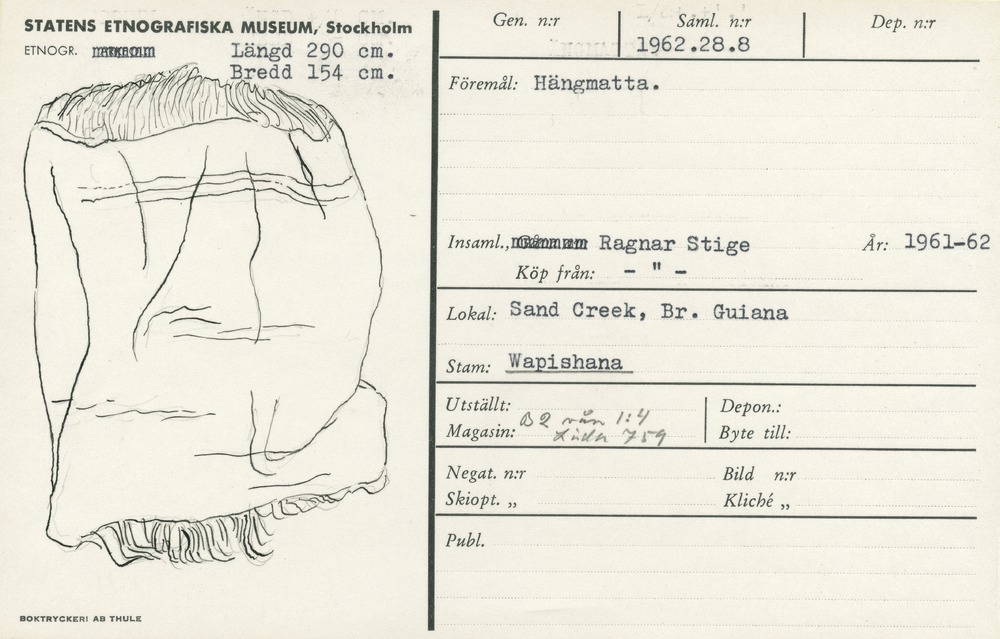 STATENS ETNOGRAFISKA MUSEUM, Stockholm
ETNOGR.
Längd 290 cm.
Bredd 154 cm.
BOKTRYCKERI AB THULE
Gen. n:r
Saml. n:r
1962.28.8
Dep. n:r
Föremål: Hängmatta.
Insaml., Ragnar Stige År: 1961-62
Köp från: - " -
Lokal: Sand Creek, Br. Guiana
Stam: Wapishana
Utställt:
Depon.:
B2 vån 1:4
Magasin: Låda 759
Byte till:
Negat. n:r
Bild n:r
Skiopt. „
Kliché „
Publ.